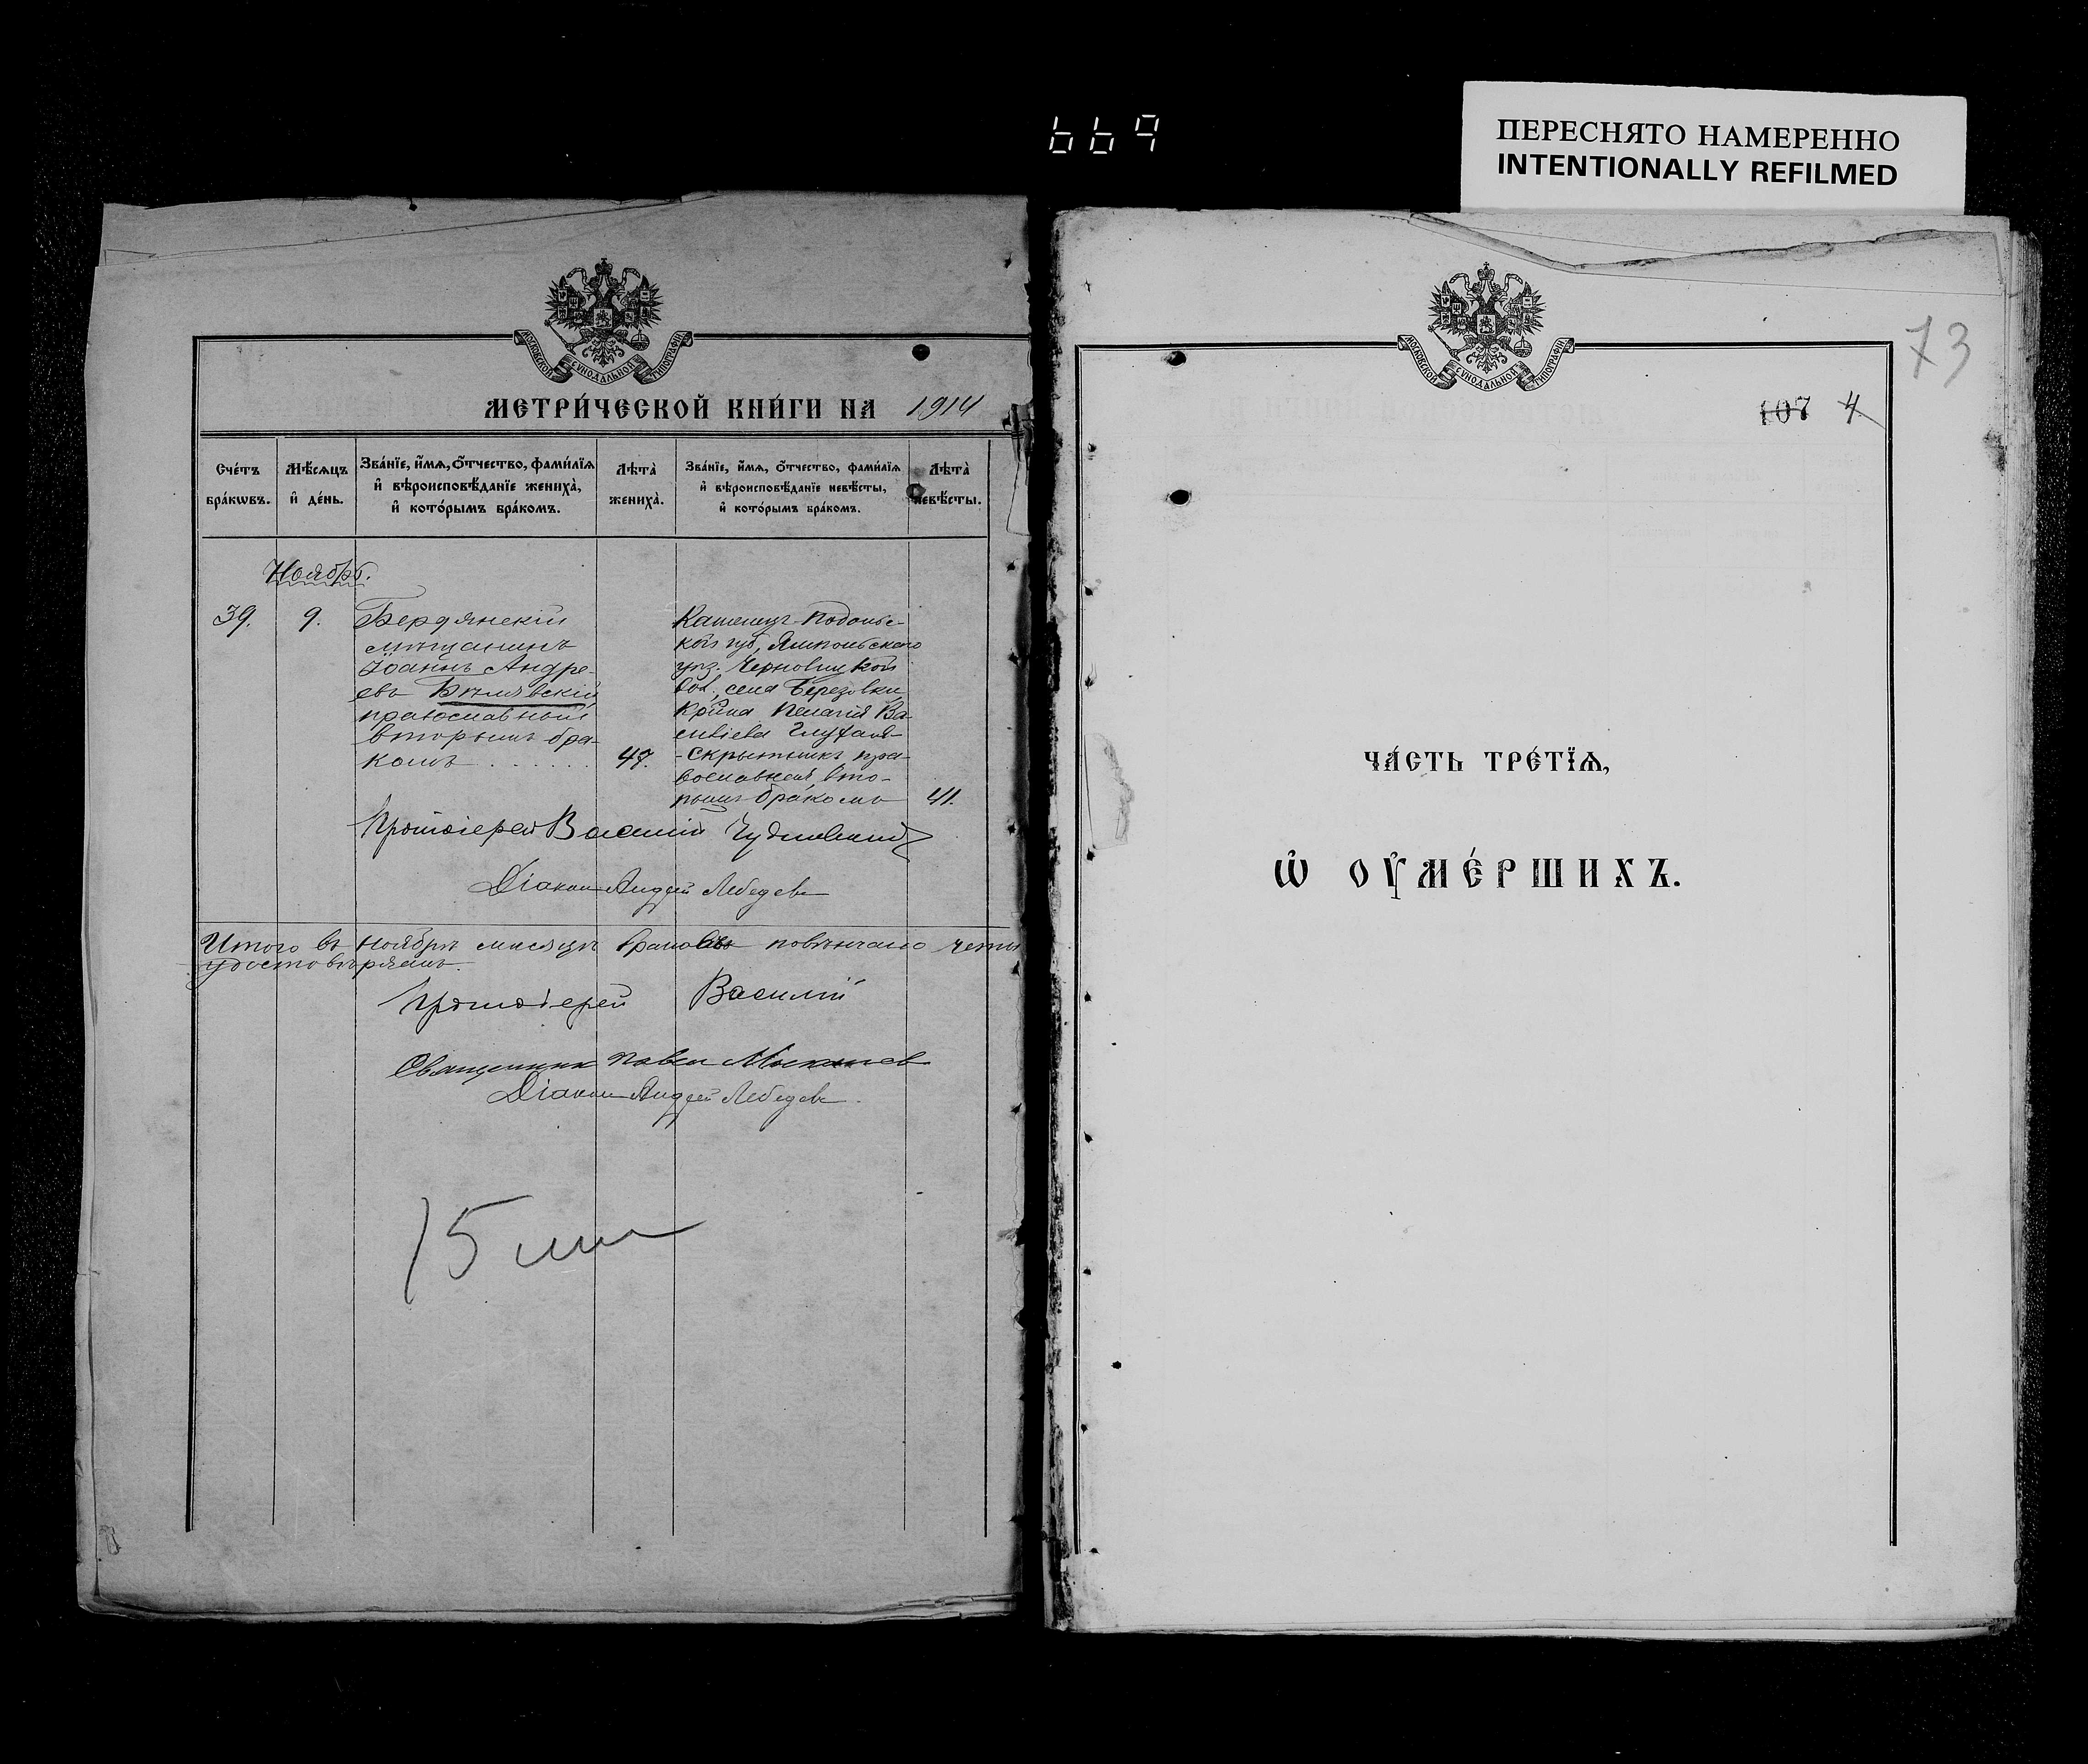 669
ПЕРЕСНЯТО НАМЕРЕННО
INTENTIONALLY REFILMED
МОСКОВСКОЙ СѴНОДАЛЬНОЙ ТИПОГРАФІИ
МЕТРИ́ЧЕСКОЙ КНИ́ГИ НА 1914
Сче́тъ бра́кѡвъ.
Мѣ́сѧцъ и҆ де́нь.
Зва́нїе, и҆́мѧ, ѻ҆́тчество, фами́лїѧ и҆ вѣроисповѣ́данїе жениха̀, и҆ кото́рымъ бра́комъ.
Лѣта̀ жениха̀.
Зва́нїе, и҆́мѧ, ѻ҆́тчество, фами́лїѧ и҆ вѣроисповѣ́данїе невѣ́сты, и҆ кото́рымъ бра́комъ.
Лѣта̀ невѣ́сты.
Ноябрь.
39.
9.
Бердянскій
мѣщанинъ
Іоаннъ Андре-
евъ Бѣлявскій
православный
вторымъ бра-
комъ . . . . . .
47.
Каменецъ-Подоль-
кой губ, Ямпольскаго
уѣз. Черновицкой
вол, села Березовки
Пелагія Ва-
силіева
-Скрытникъ пра-
вославная, вто-
рымъ бракомъ
41.
Протоіерей Василій
Діаконъ Андрей Лебедевъ
Итого въ ноябрѣ мѣсяцѣ браковъ повѣнчано четы
удостовѣряемъ.
Протоіерей Василій
Священник Павел
Діаконъ Андрей Лебедевъ.
15
МОСКОВСКОЙ СѴНОДАЛЬНОЙ ТИПОГРАФІИ
73
107 4
ЧА́СТЬ ТРЕ́ТЇѦ,
Ѡ҆ ОУ҆МЕ́РШИХЪ.